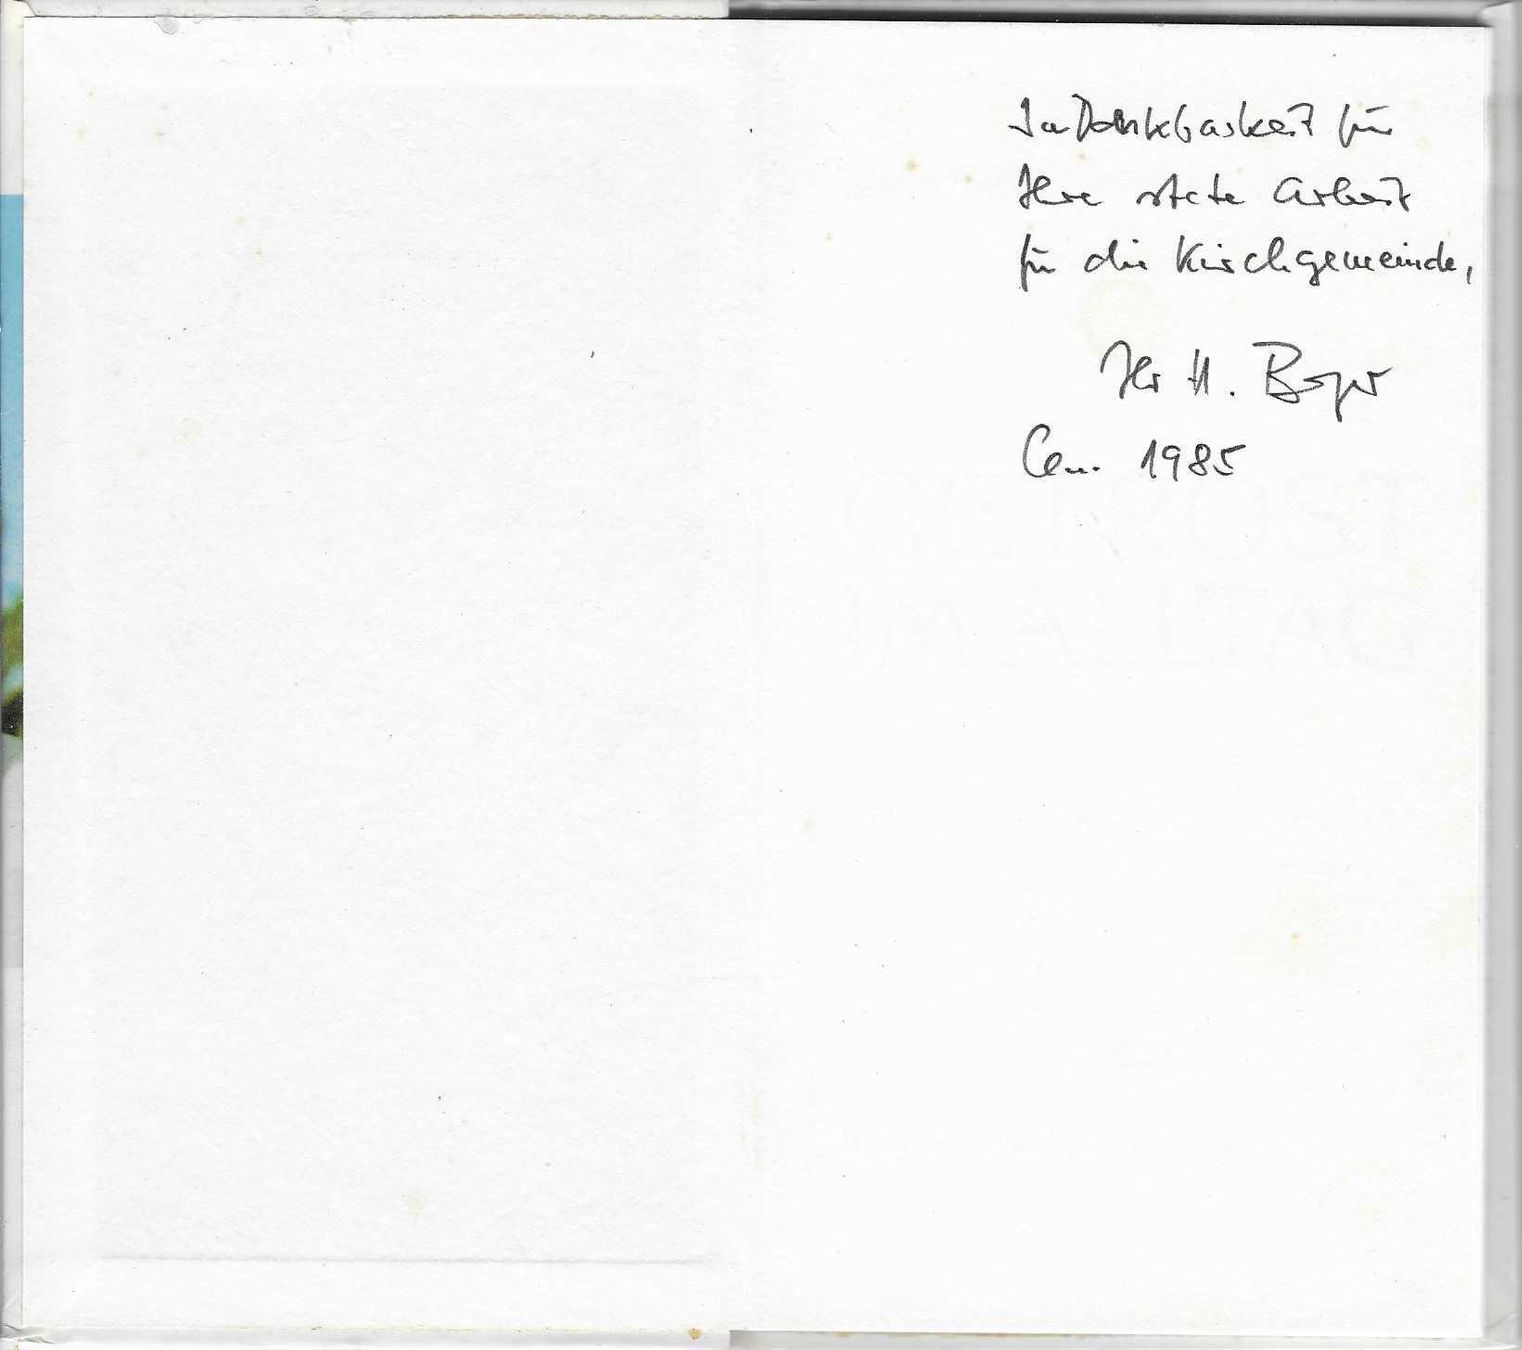 In Dankbarkeit für
Ihre stete Arbeit
für die Kirchgemeinde,
Ihr H.
1985